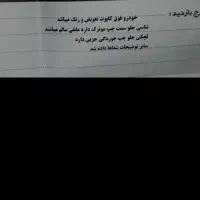 ح بازدید :
خودرو فوق کاپوت تعویض و رنگ میباشد
شاسی جلو سمت چپ موترک داره مابقی سالم میباشد
لچکی جلو چپ خوردگی جزیی دارد
سایر توضیحات شفاها داده شد